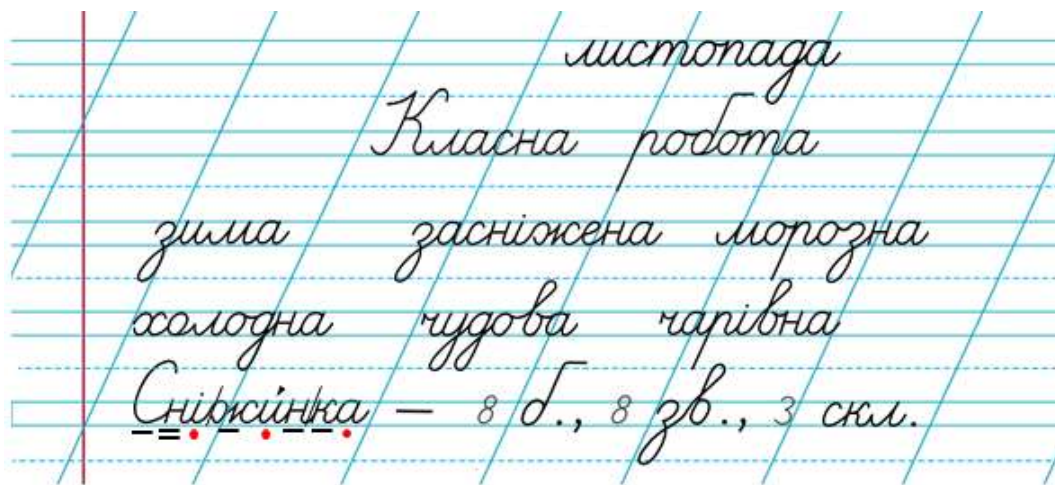 листопада
Класна робота
зима засніжена морозна
холодна чудова чарівна
Сні/жи́н/ка — 8 б., 8 зв., 3 скл.